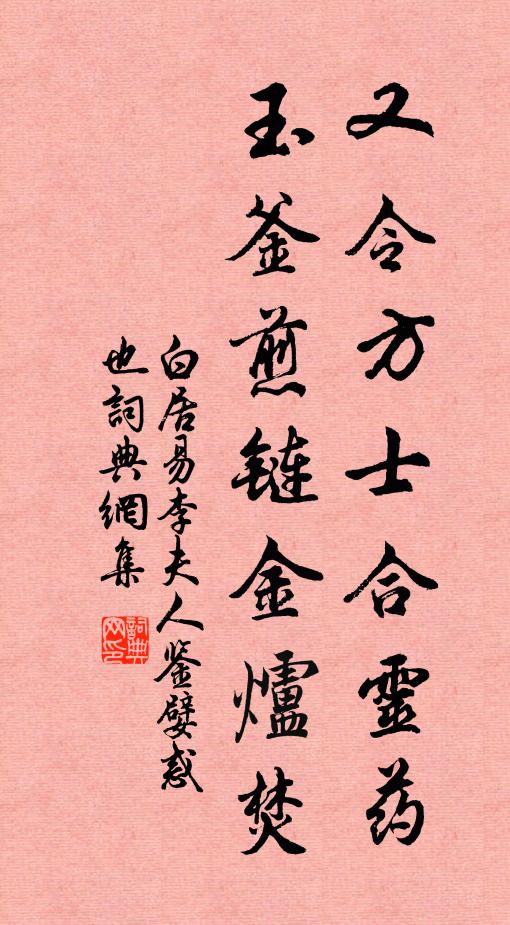 又令方士合靈药
玉釜煎鏈金爐焚
白居易李夫人鉴嬖惑
也詞典網集
詞典网印